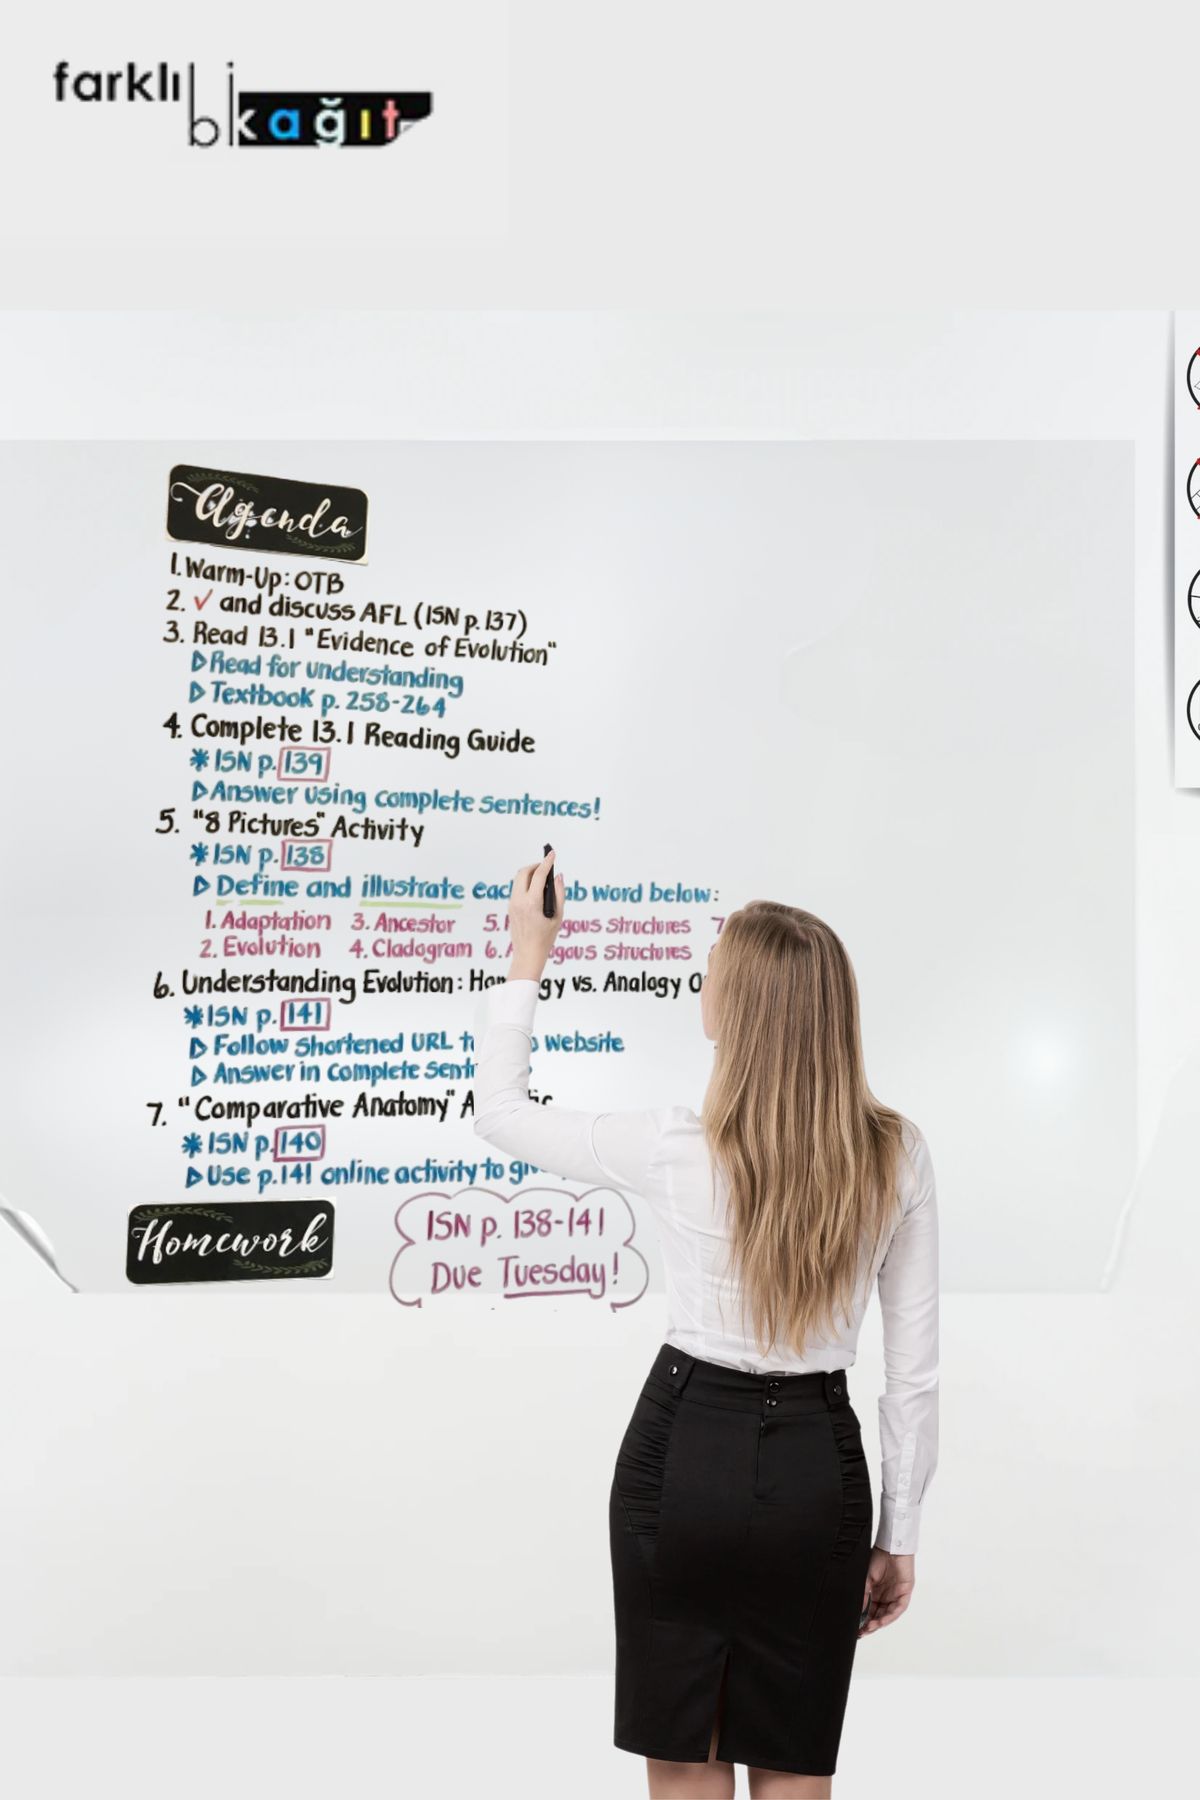 farklı bi kağıt
Agenda
1. Warm-Up: OTB
2. ✓ and discuss AFL (ISN p. 137)
3. Read 13.1 "Evidence of Evolution"
▷ Read for understanding
▷ Textbook p. 258-264
4. Complete 13.1 Reading Guide
* ISN p. 139
▷ Answer using complete sentences!
5. "8 Pictures" Activity
* ISN p. 138
▷ Define and illustrate word below:
1. Adaptation 3. Ancestor 5. Structures 7
2. Evolution 4. Cladogram 6. Structures
6. Understanding Evolution: vs. Analogy
* ISN p. 141
▷ Follow Shortened URL website
▷ Answer in Complete
7. "Comparative Anatomy"
* ISN p. 140
▷ Use p. 141 online activity to
Homework
ISN p. 138-141
Due Tuesday!